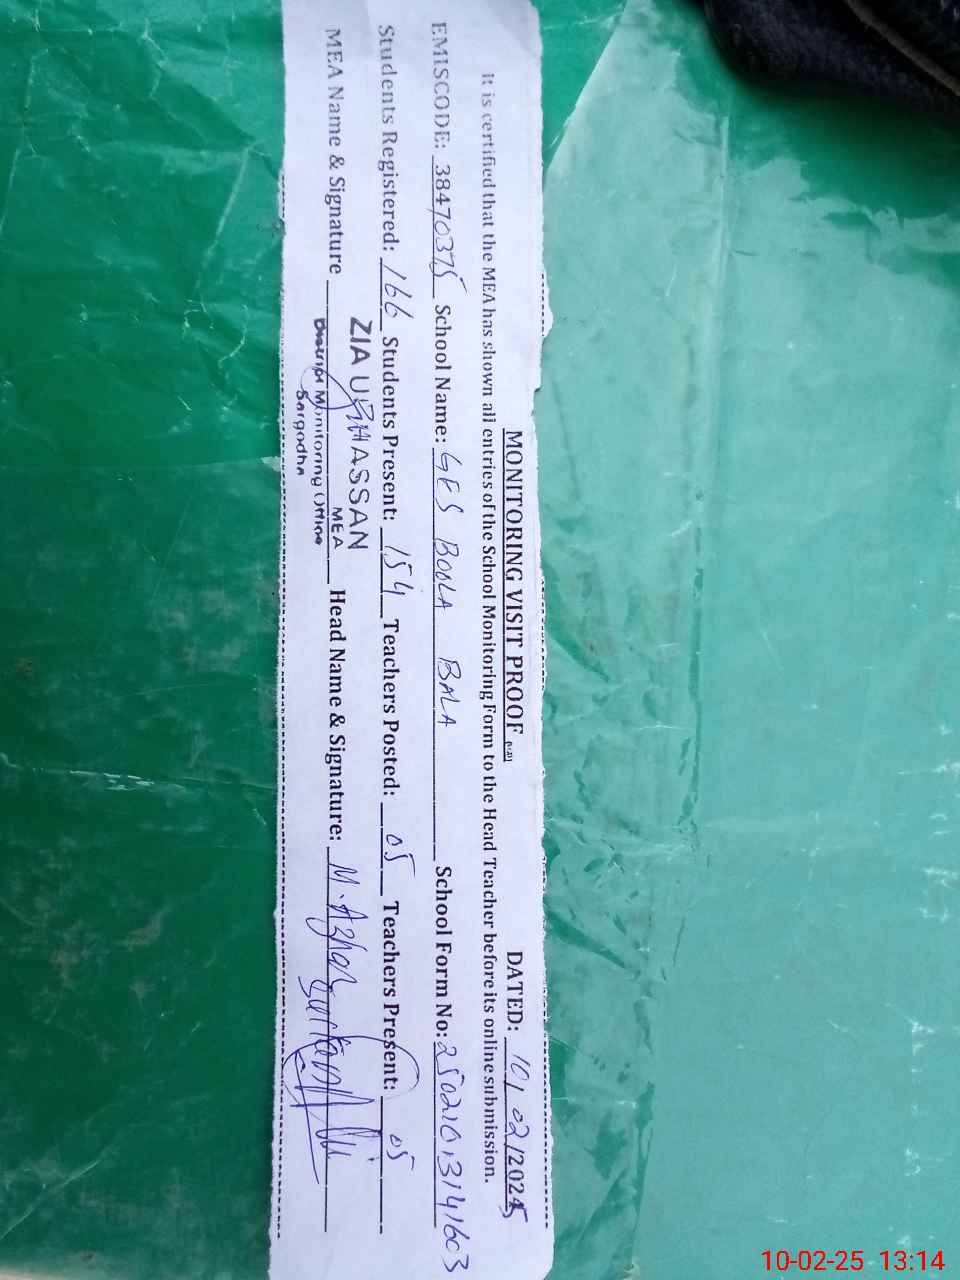 MONITORING VISIT PROOF DATED: 10/02/2025
It is certified that the MEA has shown all entries of the School Monitoring Form to the Head Teacher before its online submission.
EMISCODE: 38470375 School Name: GES BOOLA BALA School Form No: 25021013141603
Students Registered: 166 Students Present: 154 Teachers Posted: 05 Teachers Present: 05
ZIA UL HASSAN
MEA
MEA Name & Signature Head Name & Signature: M. Azhar
District Monitoring Office
Sargodha
10-02-25 13:14